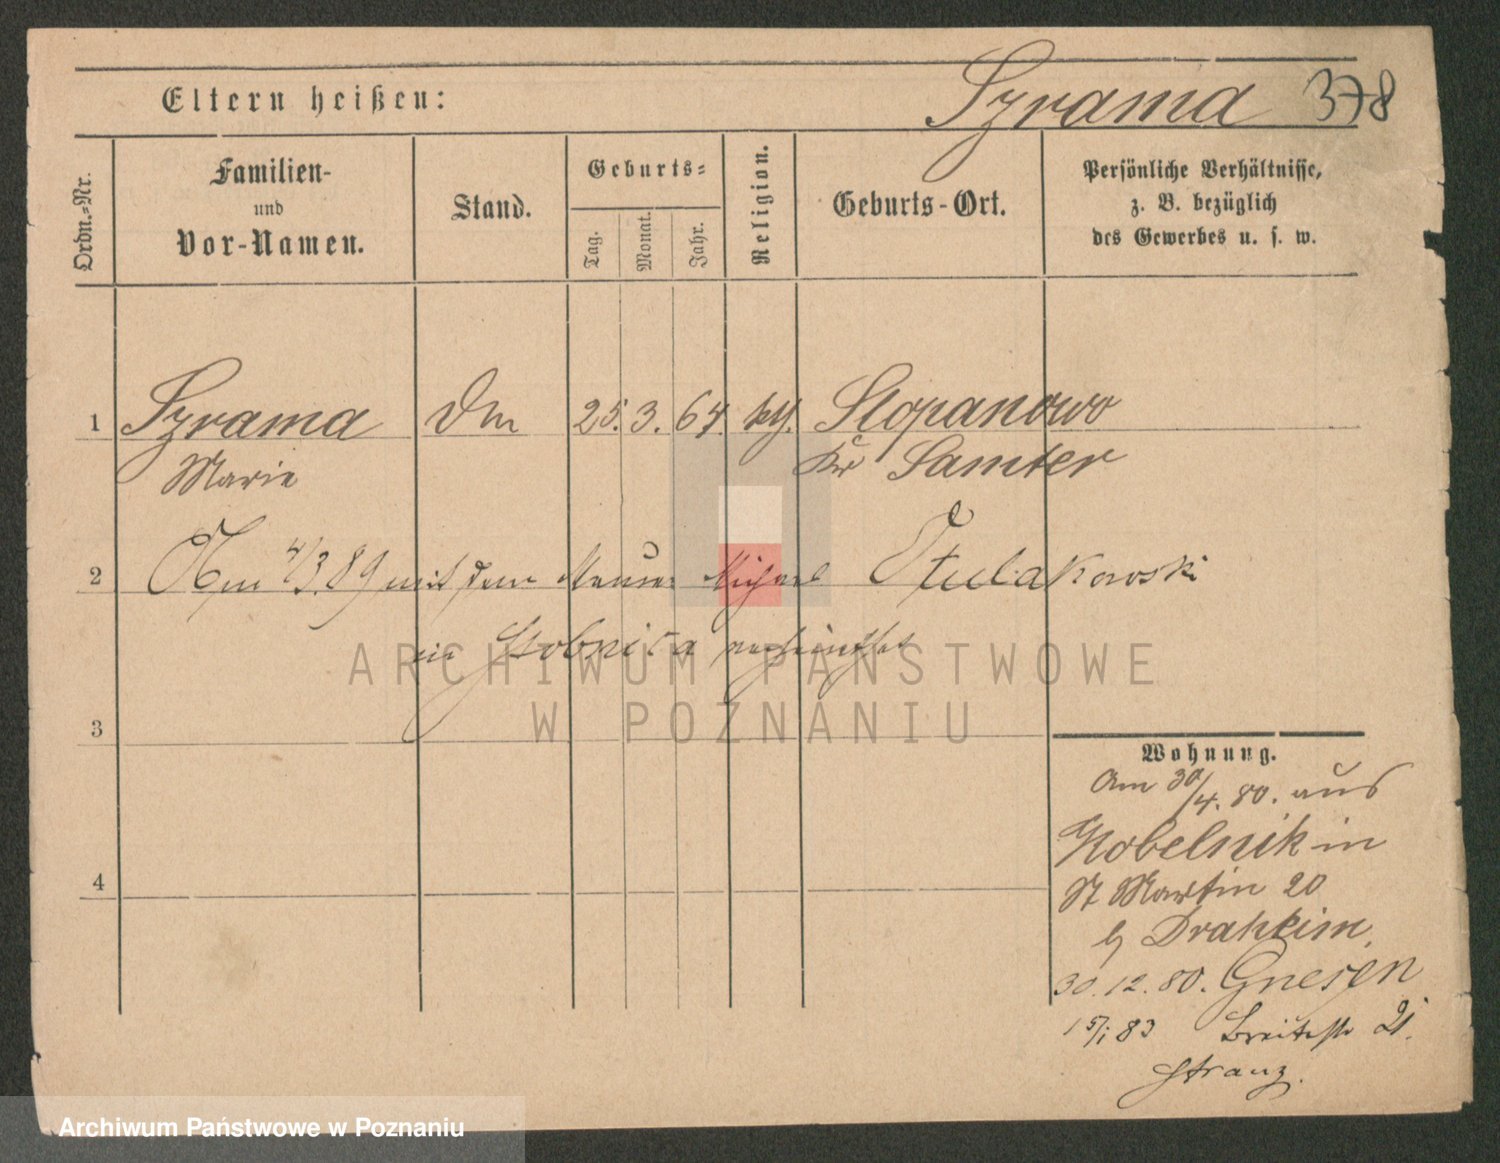 Eltern heißen:
Szrama 378
Ordn.=Nr.
Familien-
und
Vor-Namen.
Stand.
Geburts=
Tag.
Monat.
Jahr.
Religion.
Geburts-Ort.
Persönliche Verhältnisse,
z. B. bezüglich
des Gewerbes u. s. w.
1 Szrama 25. 3. 64. kth. Stopanowo
Marie Kr Samter
2 Am 4/3.89 mit dem Maurer Michael Otulakowski
in Stobnica verheirathet
3
4
Wohnung.
Am 30/4. 80. aus
Kobelnik in
St Martin 20
b Draheim
30.12.80. Gnesen
15/1 83 Breitestr 21.
Franz.
ARCHIWUM PAŃSTWOWE
W POZNANIU
Archiwum Państwowe w Poznaniu